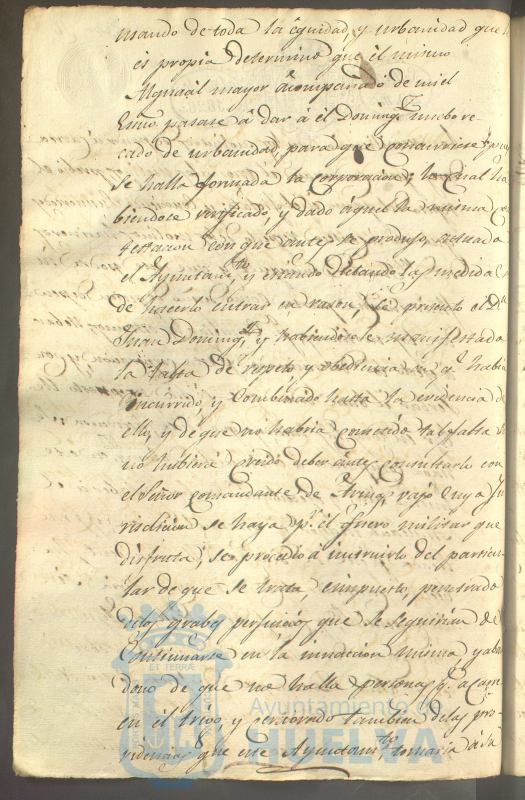 usando de toda la equidad, y urbanidad que le
es propia determinó que el mismo
Alguacil mayor acompañado de mi el
Essno. pasase á dar á el Doming.z nuebo re-
cado de urbanidad, para que concurriese
se halla formada la corporacion; lo cual ha-
biendose verificado, y dado aquel la misma con
testacion con que antes se produjo, actuada
el Ayuntam.to y estando llebando las medidas
de hacerlo entrar en razon, se presentó el Dn.
Juan Doming.z y habiendosele manifestado
la falta de respeto y obediencia en q.e habia
incurrido, y combinado hasta la evidencia de
ella, y de que no habria cometido tal falta si
no hubiera creido deber antes consultarlo con
el Señor comandante de Armas, vajo cuya Ju
risdiccion se haya p.r el fuero militar que
disfruta; se procedio á instruirlo del particu-
lar de que se trata é impuesto, penetrado
delos grabes perjuicios que se seguirian de
continuarse en la misma y aban
dono de que no halla personas q.e
en el trigo, y cerciorado tambien delas pro-
videncias que este Ayuntam.to tomaria á la
Ayuntamiento de
HUELVA